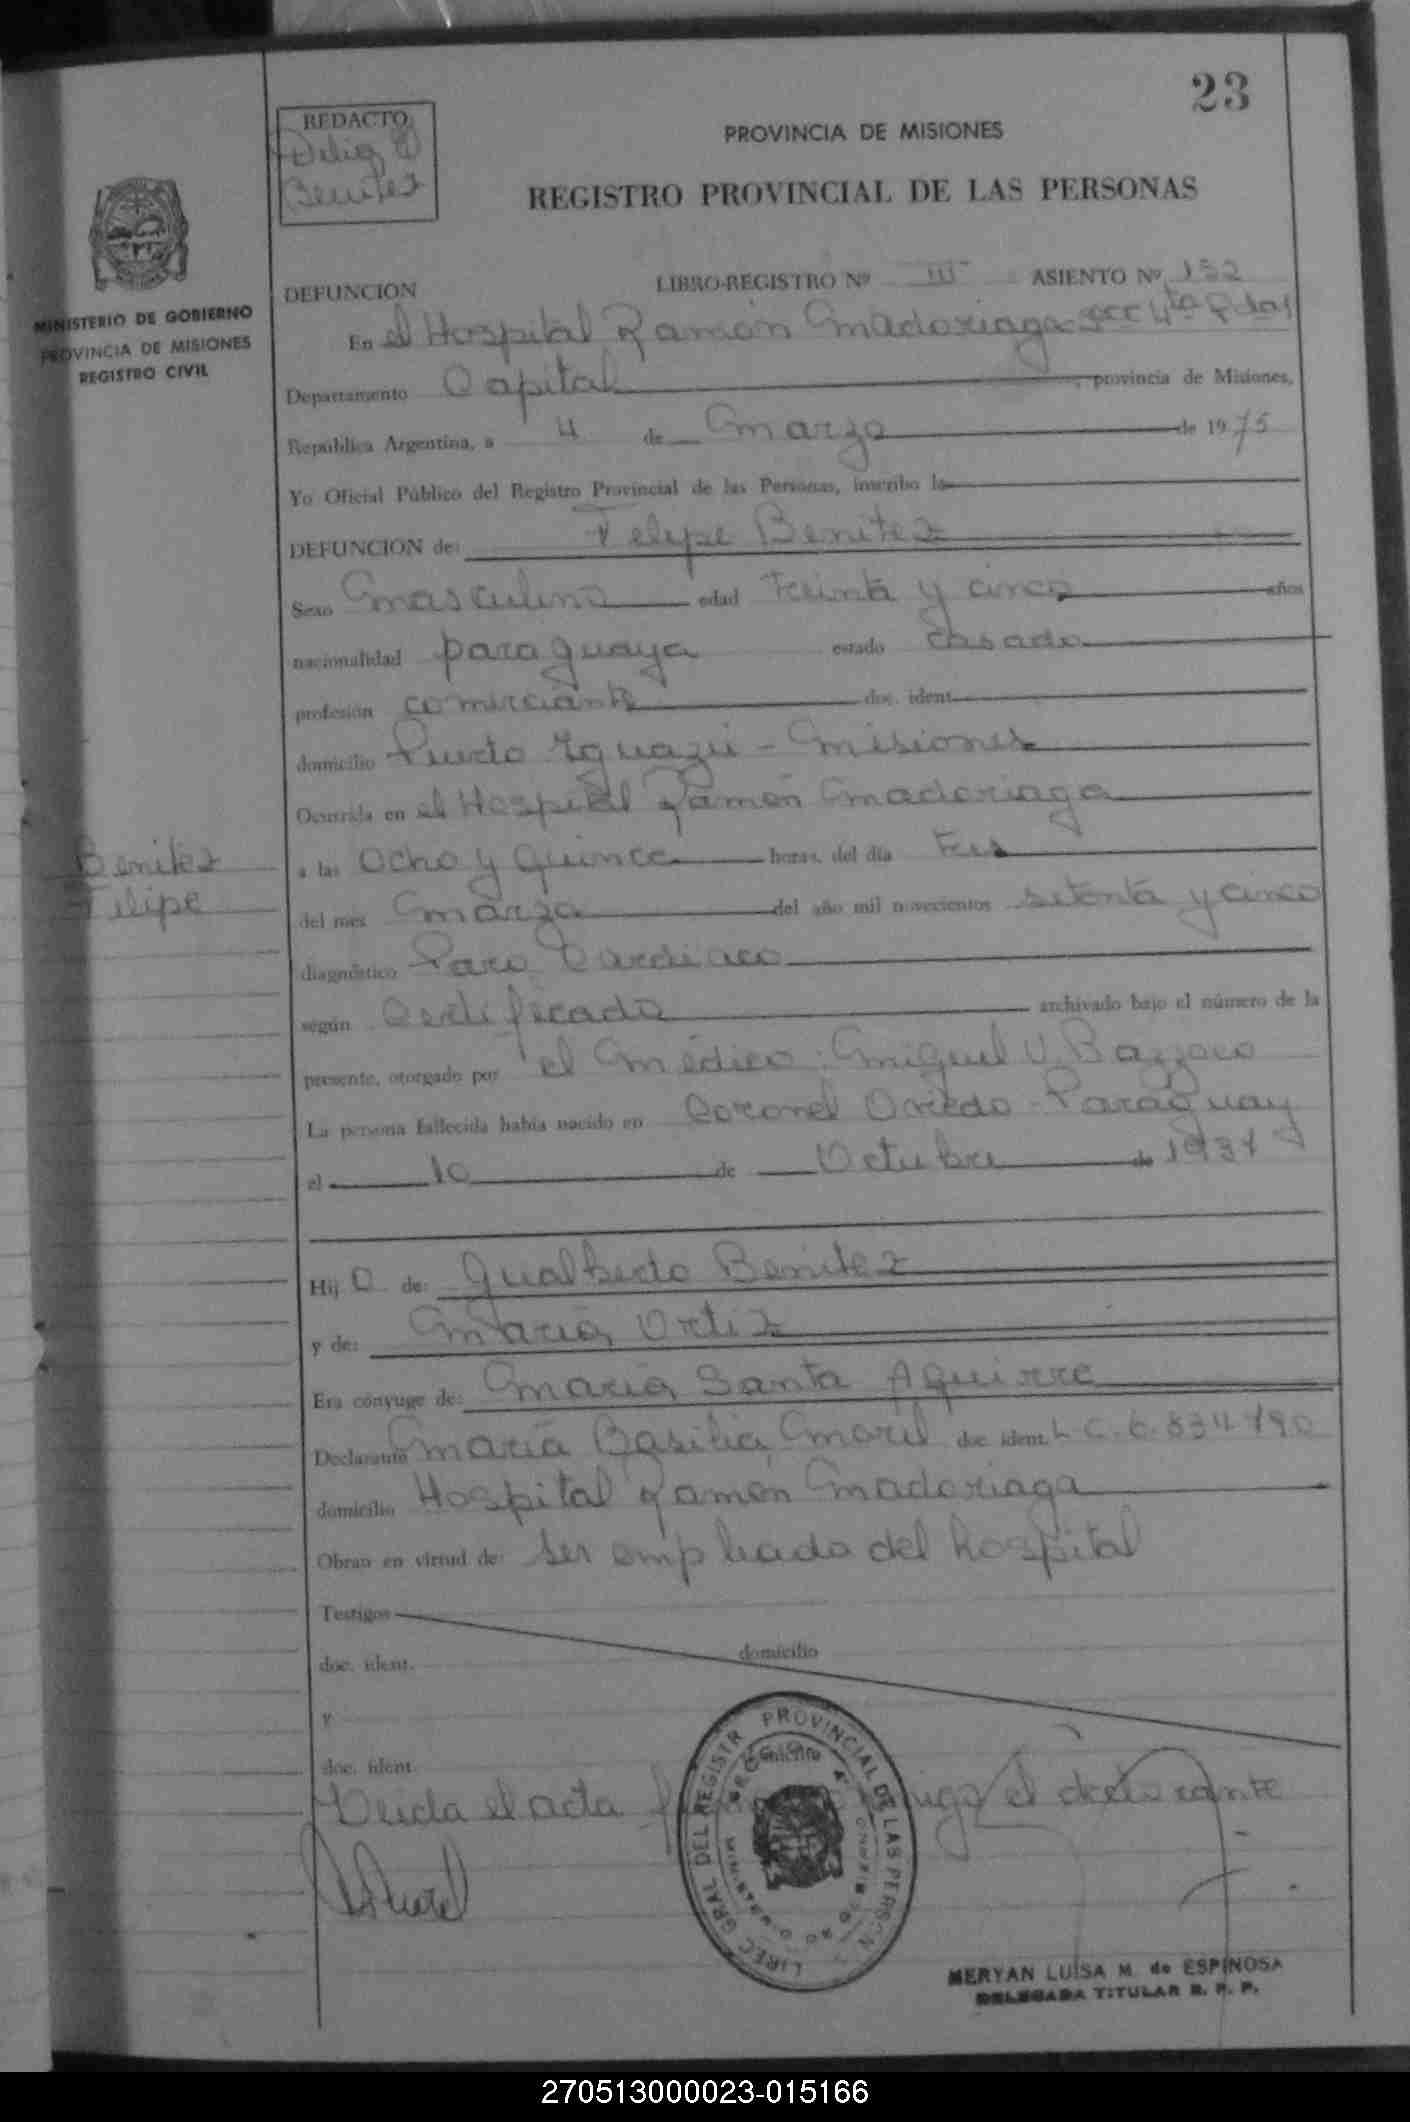 23
REDACTO
Delia
Benitez
PROVINCIA DE MISIONES
REGISTRO PROVINCIAL DE LAS PERSONAS
MINISTERIO DE GOBIERNO
PROVINCIA DE MISIONES
REGISTRO CIVIL
DEFUNCION LIBRO-REGISTRO Nº III ASIENTO Nº 152
En el Hospital Ramón Madoriaga secc 4ta Pdas
Departamento Capital, provincia de Misiones,
República Argentina, a 4 de Marzo de 1975
Yo Oficial Público del Registro Provincial de las Personas, inscribo la
DEFUNCION de: Felipe Benitez
Sexo Masculino edad treinta y cinco años
nacionalidad paraguaya estado casado
profesión comerciante doc. ident.
domicilio Puerto Iguazú - Misiones
Ocurrida en el Hospital Ramón Madoriaga
Benitez
Felipe
a las Ocho y quince horas, del día tres
del mes Marzo del año mil novecientos setenta y cinco
diagnóstico Paro Cardiaco
según Certificado archivado bajo el número de la
presente, otorgado por el Médico: Miguel V. Bazzoco
La persona fallecida había nacido en Coronel Oviedo - Paraguay
el 10 de Octubre de
Hij o de: Gualberto Benitez
y de: Maria Ortiz
Era cónyuge de: Maria Santa Aguirre
Declarante Maria Basilia Morel doc. ident. L.C. 6.834.790
domicilio Hospital Ramón Madoriaga
Obran en virtud de: ser empleada del hospital
Testigos
doc. ident. domicilio
y
doc. ident.
Leida el acta el declarante
Morel
DIREC. GRAL DEL REGISTR PROVINCIAL DE LAS PERSON
MERYAN LUISA M. de ESPINOSA
DELEGADA TITULAR R. P. P.
270513000023-015166